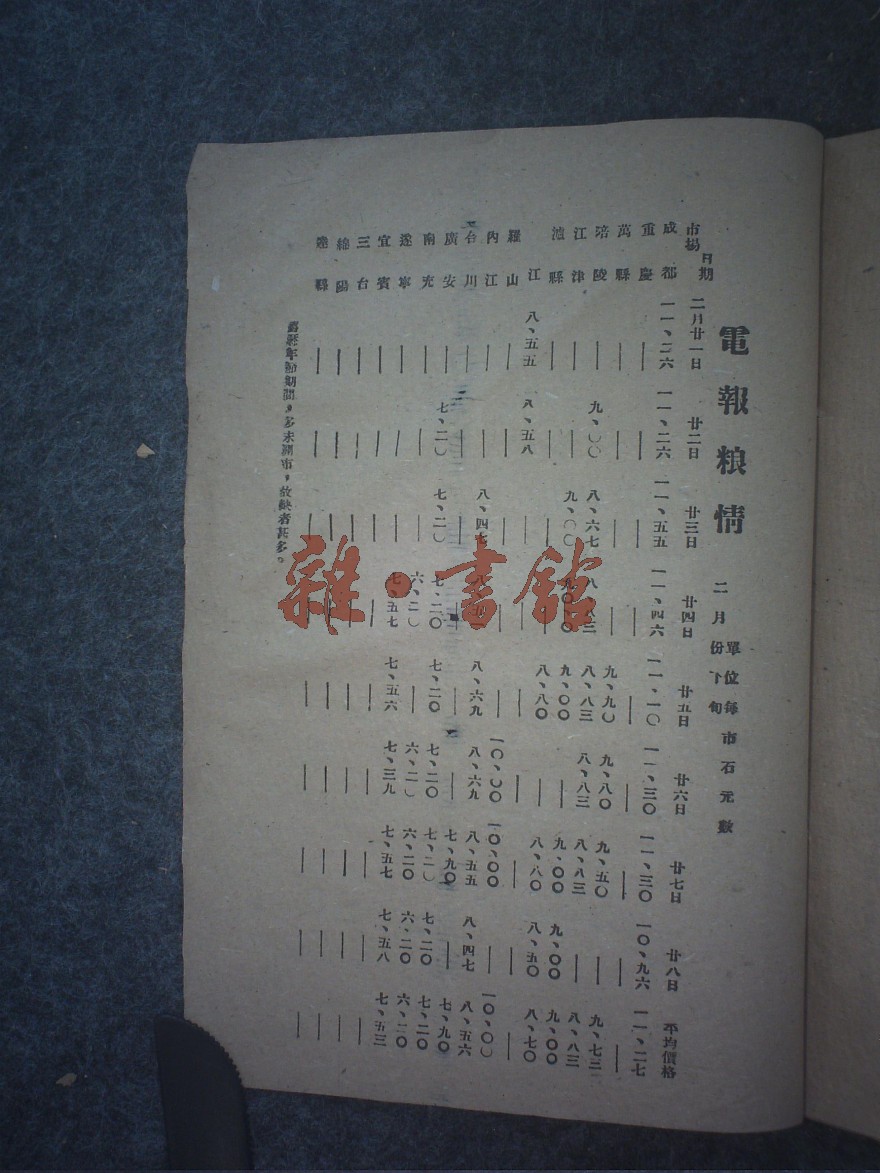 電報粮情 二月份下旬 單位每市石元數
市場 日期 二月廿一日 廿二日 廿三日 廿四日 廿五日 廿六日 廿七日 廿八日 平均價格
成都 一一、二六 一一、二六 一一、五五 一一、四六 一一、一〇 一一、三〇 一一、三〇 一〇、九六 一一、二七
重慶 — — — — — — — — —
萬縣 — — — — 九、九〇 九、八〇 九、五〇 — 九、七三
涪陵 — 九、〇〇 八、六七 八、八三 八、八三 八、八三 八、八三 — 八、八三
江津 — — 九、〇〇 九、〇〇 九、〇〇 — 九、〇〇 九、〇〇 九、〇〇
瀘縣 — — — — 八、八〇 — 八、八〇 八、五〇 八、七〇
江 八、五五 八、五八 — — — — — — —
山 — — — — — 一〇、〇〇 一〇、〇〇 — 一〇、〇〇
內江 — — 八、四七 八、 八、六九 八、六九 八、五五 八、四七 八、五六
川 — — — — — — 七、九〇 — 七、九〇
廣安 — 七、二〇 七、二〇 七、二〇 七、二〇 七、二〇 七、二〇 七、二〇 七、二〇
南充 — — — 六、二〇 — 六、二〇 六、二〇 六、二〇 六、二〇
遂寧 — — — 七、五七 七、五六 七、三九 七、五七 七、五八 七、五三
宜賓 — — — — — — — — —
三台 — — — — — — — — —
綿陽 — — — — — — — — —
達縣 — — — — — — — — —
舊歷年節期間，多未開市，故缺者甚多。
雜·書館